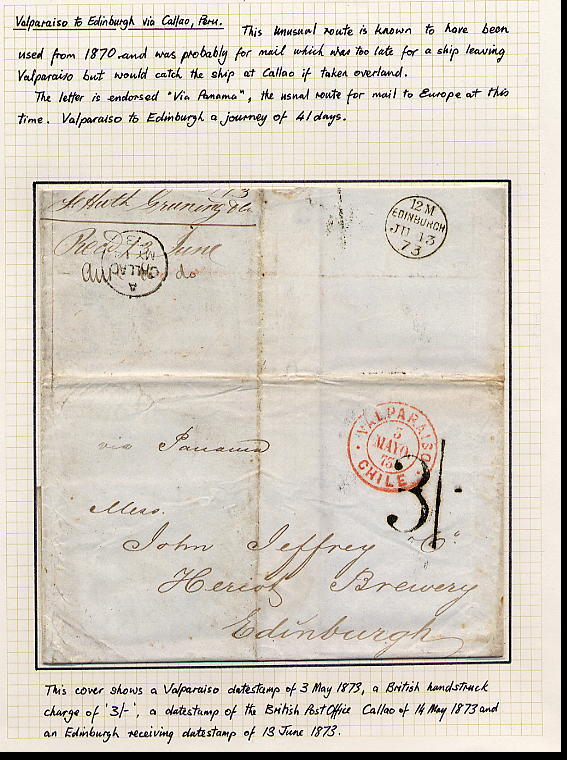 Valparaiso to Edinburgh via Callao, Peru. This unusual route is known to have been
used from 1870 and was probably for mail which was too late for a ship leaving
Valparaiso but would catch the ship at Callao if taken overland.
The letter is endorsed "Via Panama", the usual route for mail to Europe at this
time. Valparaiso to Edinburgh a journey of 41 days.
Huth Gruning & Co
Recd. 13 June
12 M
EDINBURGH
JU 13
73
A
CALLAO
MY 14
73
do
VALPARAISO
3
MAYO
73
CHILE
3/-
via Panama
Mess.
John Jeffrey & Co.
Heriot Brewery
Edinburgh
This cover shows a Valparaiso datestamp of 3 May 1873, a British handstruck
charge of '3/-', a datestamp of the British Post Office Callao of 14 May 1873 and
an Edinburgh receiving datestamp of 13 June 1873.